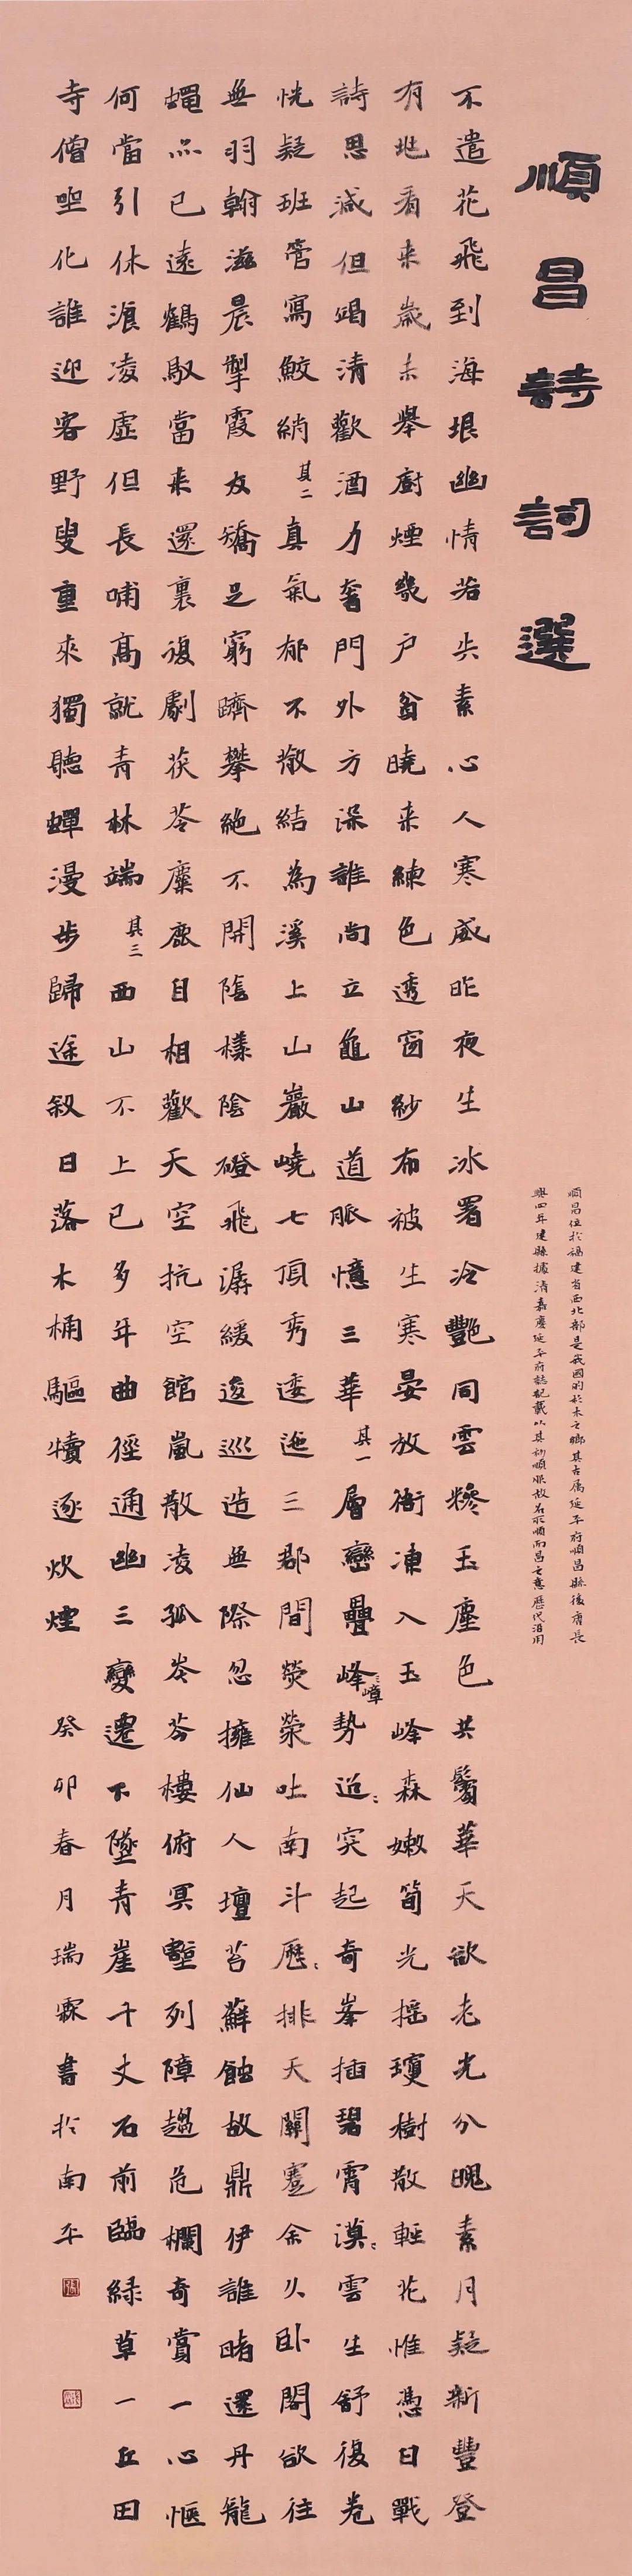 順昌詩詞選
順昌位於福建省西北部是我國的杉木之鄉其古屬延平府順昌縣後唐長
興四年建縣據清嘉慶延平府誌記載以其初順服故名取順而昌之意歷代沿用
不遣花飛到海垠幽情若失素心人寒威昨夜生冰署冷艷同雲糝玉塵色共鬢華天欲老光分瑰素月疑新豐登
有兆看來歲未舉廚煙幾戶貧曉來練色透窗紗布被生寒晏放衙凍入玉峰森嫩筍光搖瓊樹散輕花惟憑日戰
詩思減但竭清歡酒力奢門外方深誰尚立龜山道脈憶三華其一層巒疊峰嶂勢迢突起奇峯插碧霄漠雲生舒復卷
恍疑班管寫鮫綃其二真氣郁不散結為溪上山巖嶢七頂秀逶迤三郡間熒熒吐南斗歷排天關蹇余久臥閣欲往
無羽翰滋晨掣霞友矯足窮躋攀絕不開陰樣陰磴飛潺緩逡巡造無際忽擁仙人壇苔蘚蝕故鼎伊誰睹還丹龍
蠅亦已遠鶴馭當來還裏復劚茯苓麋鹿自相歡天空抗空館嵐散凌孤岑芬樓俯冥壑列障趨危欄奇賞一心愜
何當引休浪凌虛但長哺高就青林端其三西山不上已多年曲徑通幽三變遷下墜青崖千丈石前臨綠草一丘田
寺僧坐化誰迎客野叟重來獨聽蟬漫步歸途叙日落木桶驅犢逐炊煙癸卯春月瑞霖書於南平